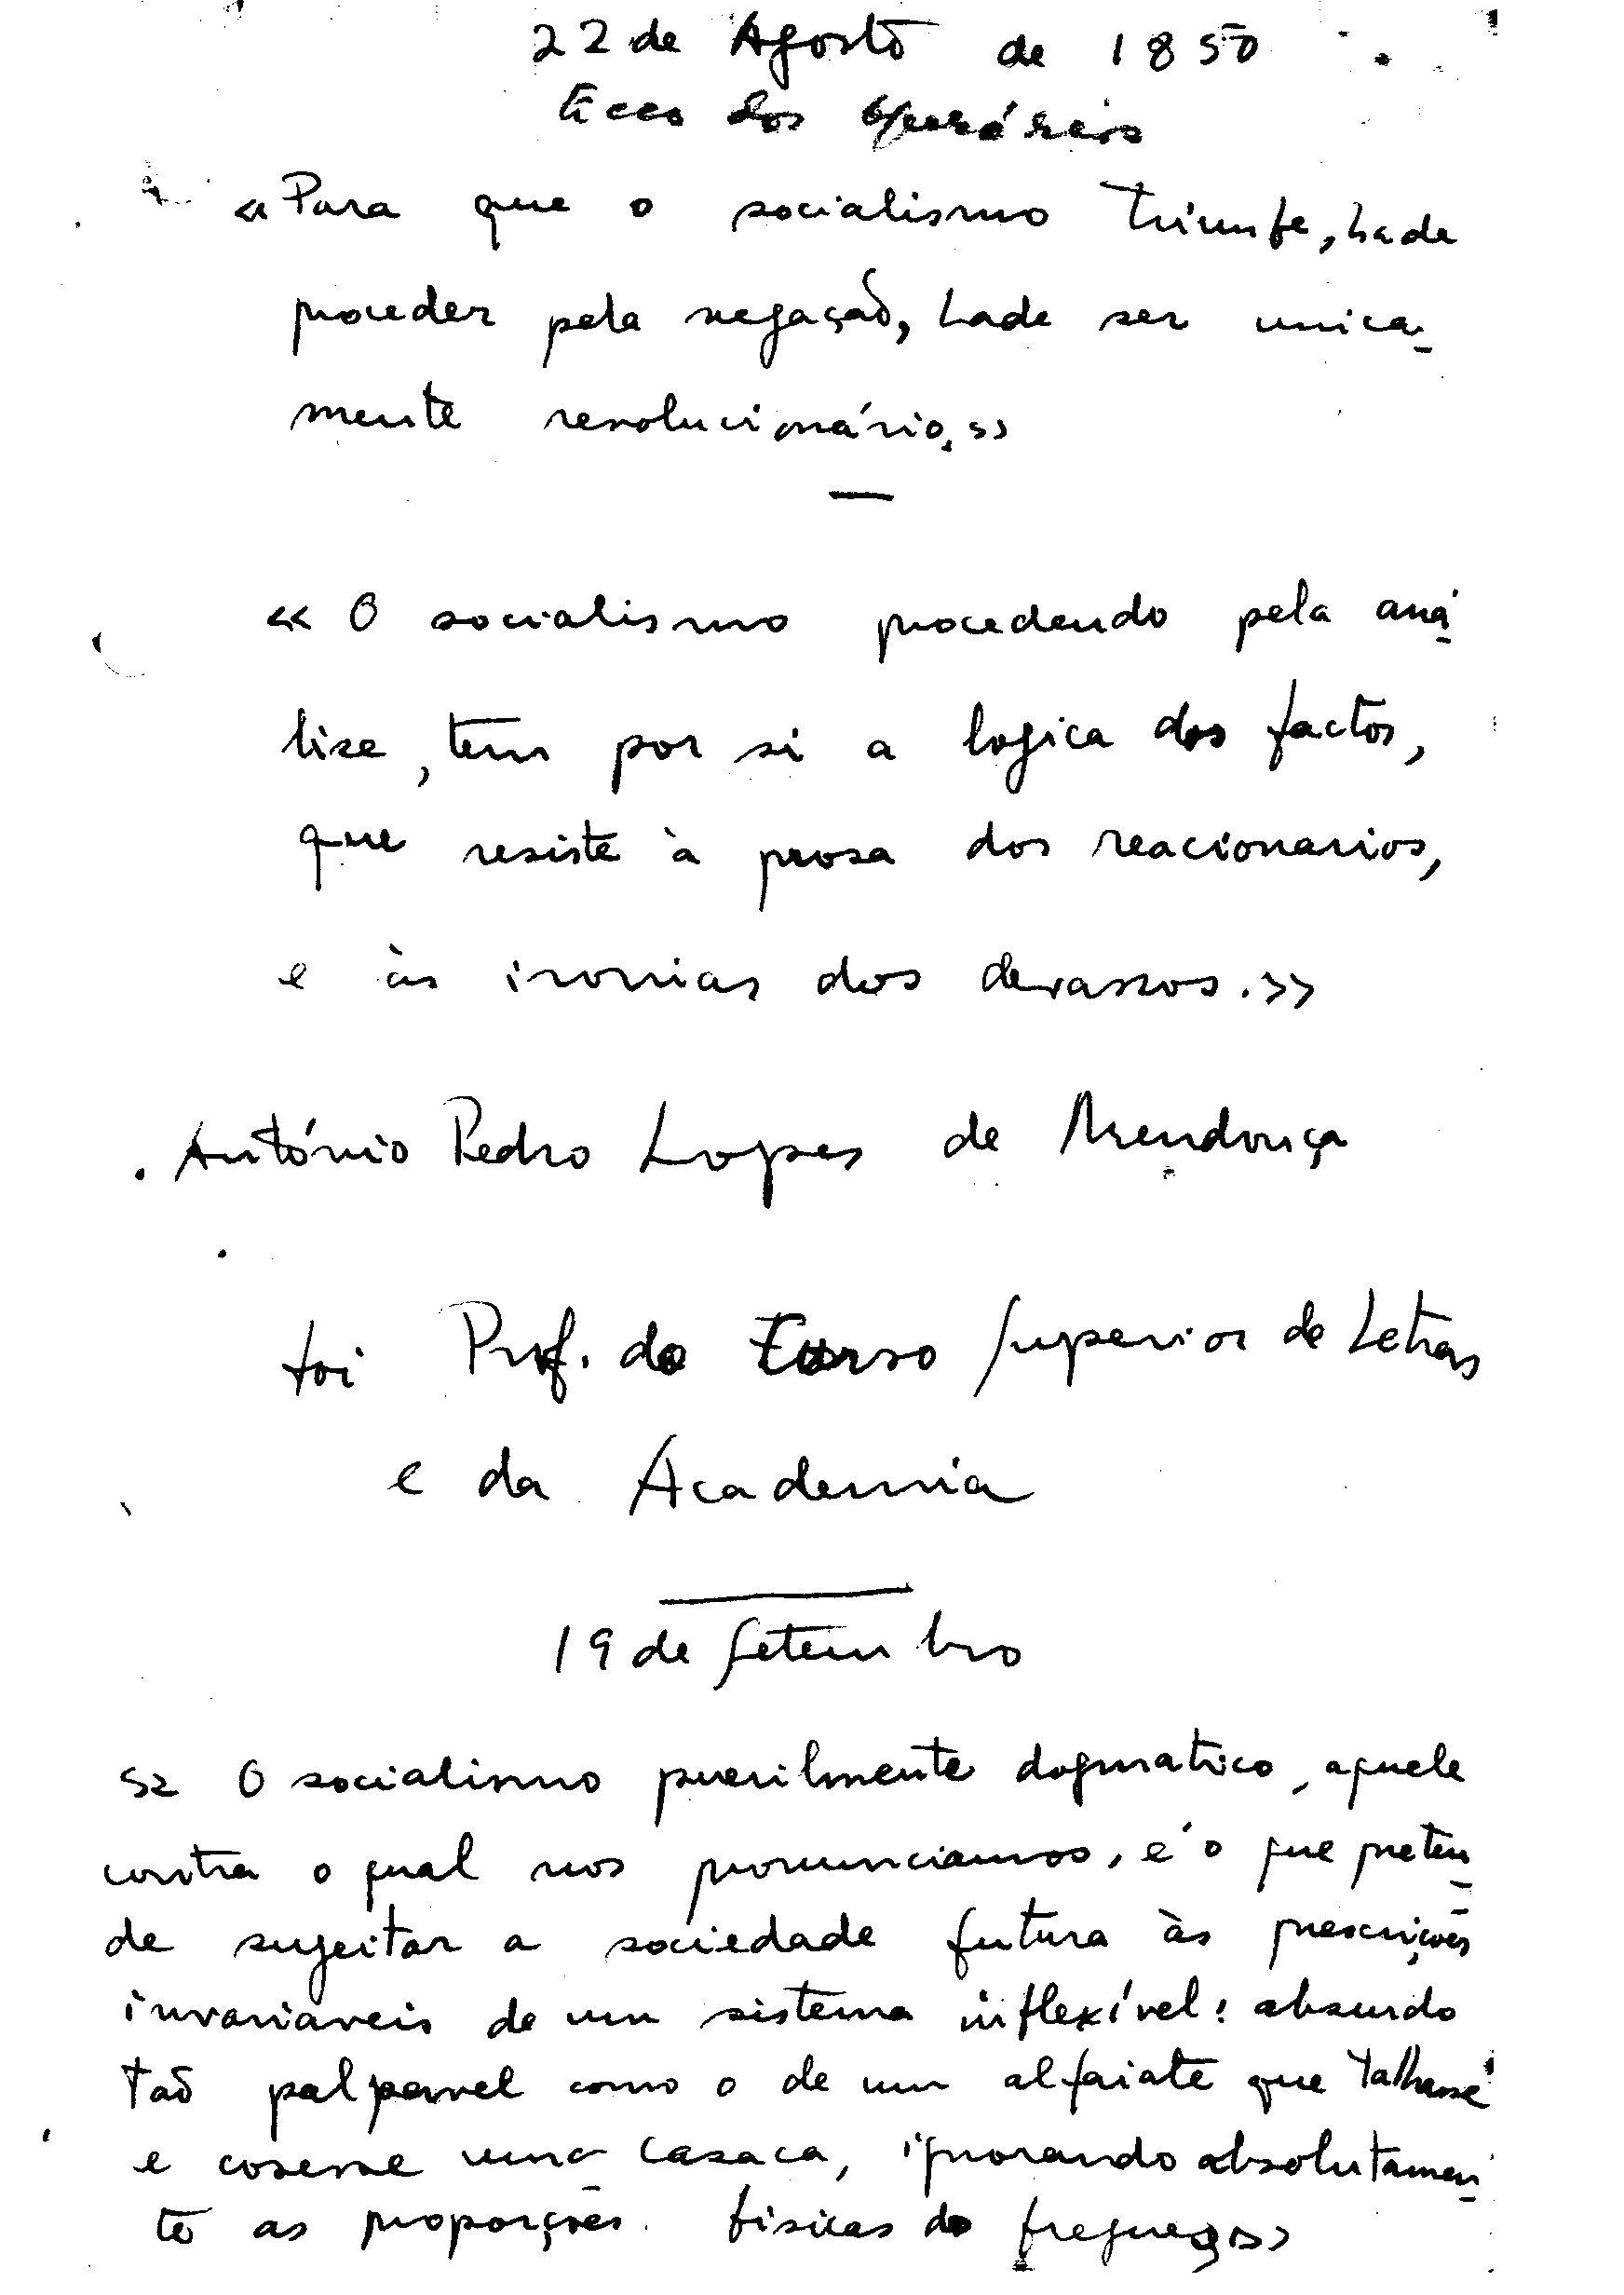 22 de Agosto de 1850
Ecco dos Operários
«Para que o socialismo triunfe, hade
proceder pela negação, hade ser unica-
mente revolucionário.»
—
«O socialismo procedendo pela aná-
lise, tem por si a logica dos factos,
que resiste à prosa dos reacionarios,
e às ironias dos devassos.»
António Pedro Lopes de Mendonça
foi Prof. do Curso Superior de Letras
e da Academia
19 de Setembro
«O socialismo puerilmente dogmatico, aquele
contra o qual nos pronunciamos, é o que preten-
de sugeitar a sociedade futura às prescrições
invariaveis de um sistema inflexível: absurdo
tão palpavel como o de um alfaiate que talhasse
e cosesse uma casaca, ignorando absolutamen-
te as proporções fisicas do freguez»